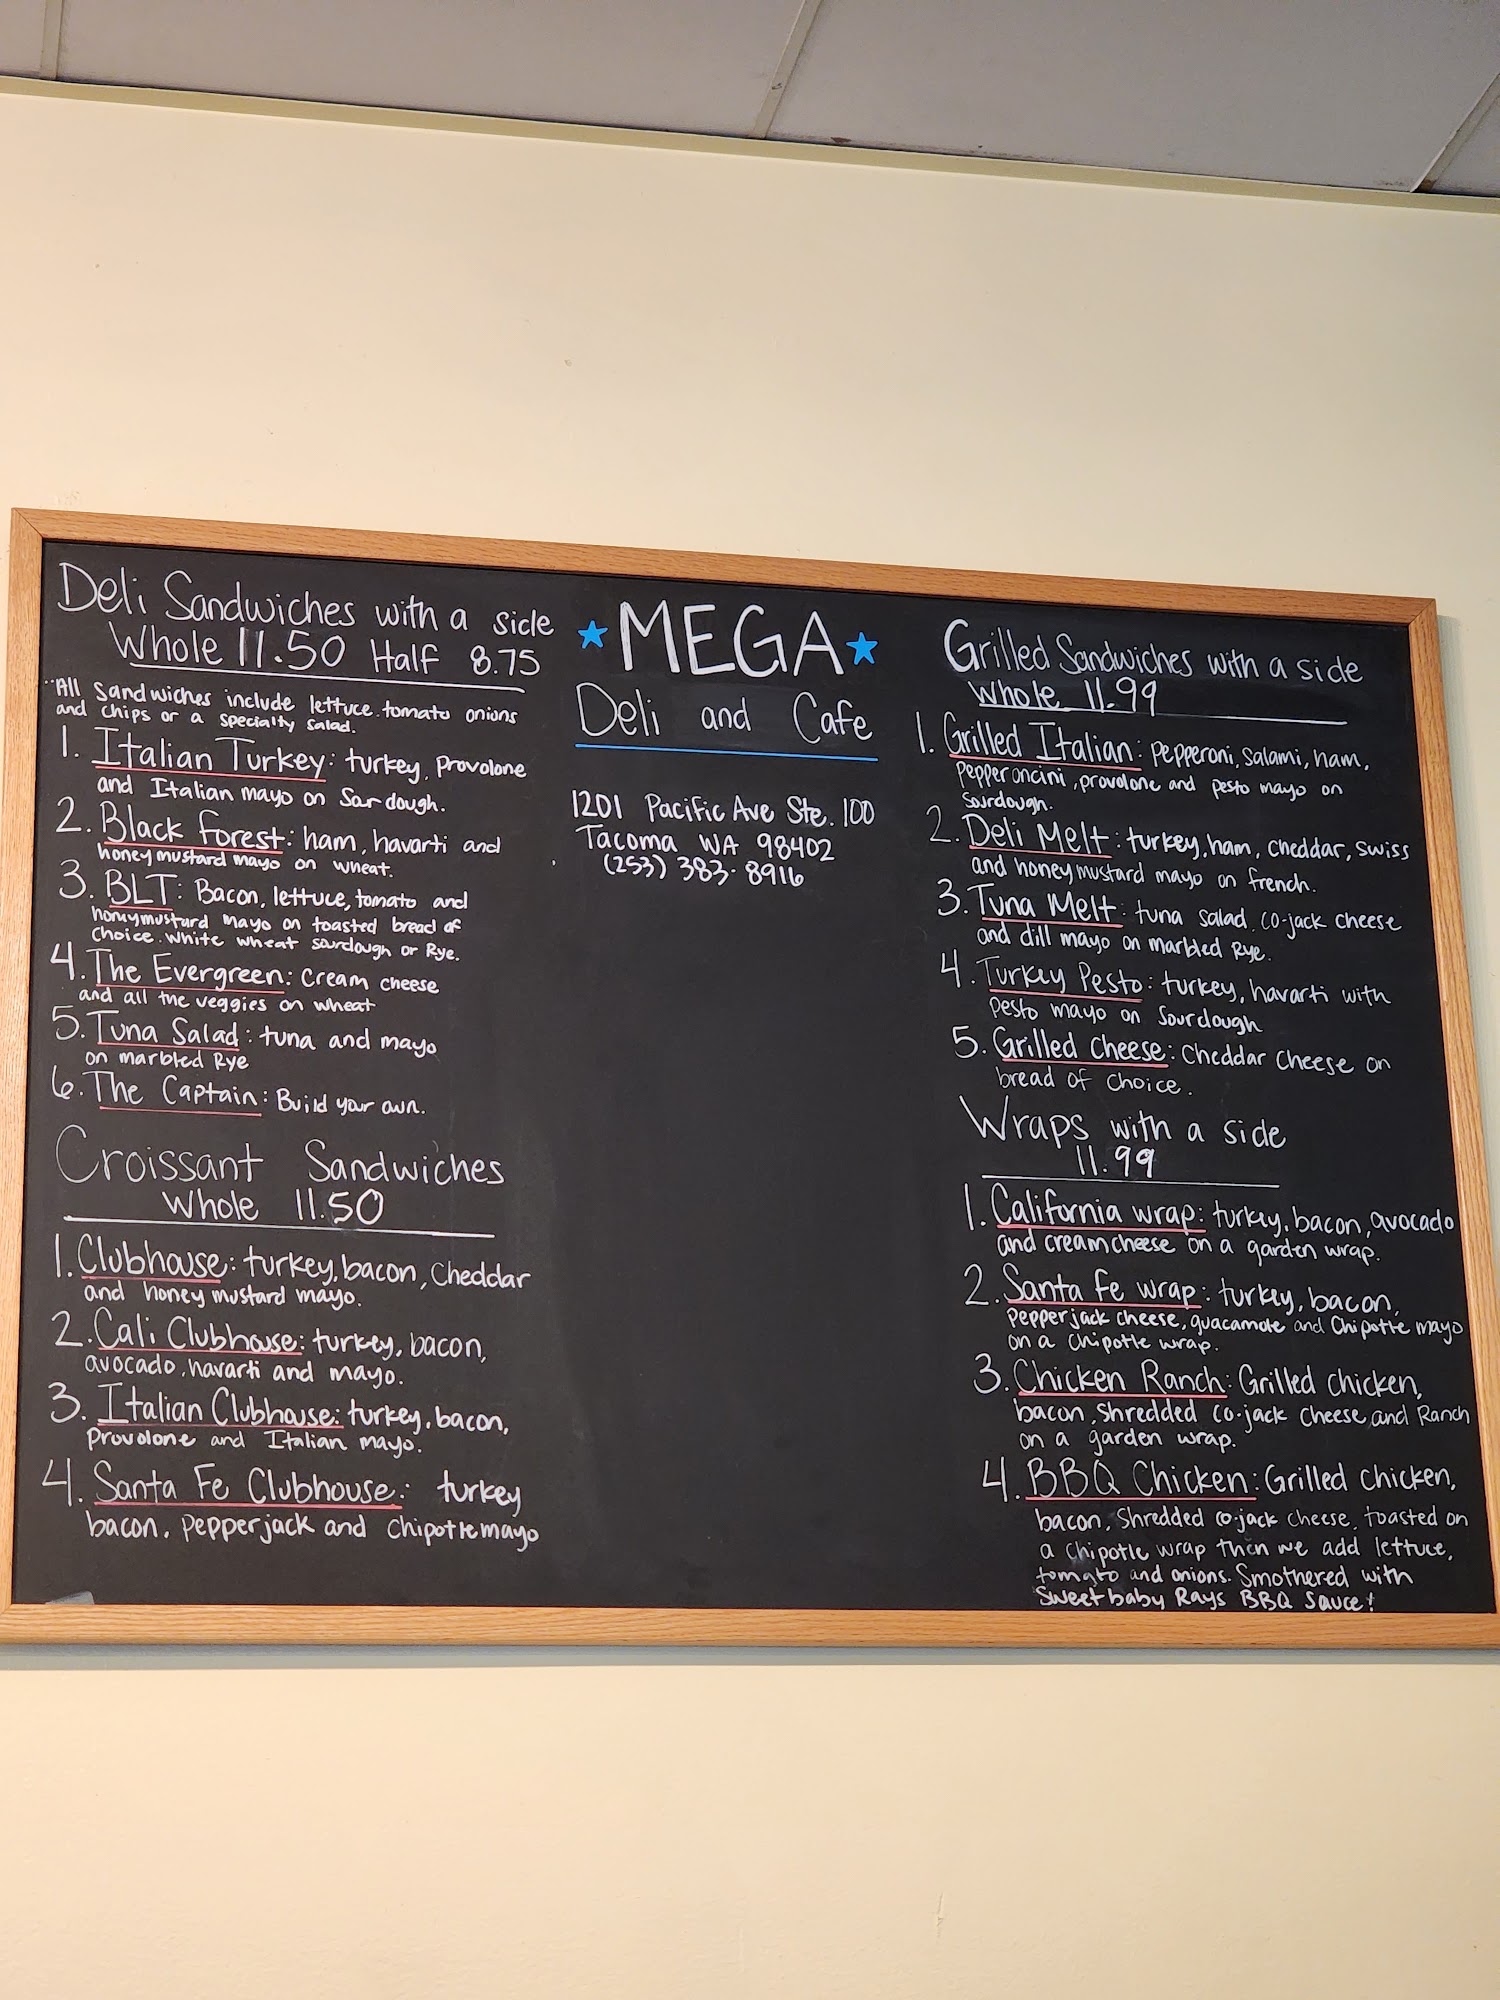 Deli Sandwiches with a side
Whole 11.50 Half 8.75
"All Sandwiches include lettuce tomato onions
and chips or a specialty salad.
1. Italian Turkey: turkey, Provolone
and Italian mayo on Sourdough.
2. Black forest: ham, havarti and
honeymustard mayo on wheat.
3. BLT: Bacon, lettuce, tomato and
honeymustard mayo on toasted bread of
choice. White wheat sourdough or Rye.
4. The Evergreen: Cream cheese
and all the veggies on wheat
5. Tuna Salad: tuna and mayo
on marbled Rye
6. The Captain: Build your own.
Croissant Sandwiches
Whole 11.50
1. Clubhouse: turkey, bacon, Cheddar
and honey mustard mayo.
2. Cali Clubhouse: turkey, bacon,
avocado, havarti and mayo.
3. Italian Clubhouse: turkey, bacon,
Provolone and Italian mayo.
4. Santa Fe Clubhouse: turkey
bacon, pepperjack and chipotle mayo
MEGA
Deli and Cafe
1201 Pacific Ave Ste. 100
Tacoma WA 98402
(253) 383-8916
Grilled Sandwiches with a side
Whole 11.99
1. Grilled Italian: pepperoni, salami, ham,
Pepperoncini, provolone and pesto mayo on
Sourdough.
2. Deli Melt: turkey, ham, cheddar, swiss
and honeymustard mayo on french.
3. Tuna Melt: tuna salad, co-jack cheese
and dill mayo on marbled Rye.
4. Turkey Pesto: turkey, havarti with
Pesto mayo on Sourdough
5. Grilled cheese: Cheddar cheese on
bread of choice.
Wraps with a side
11.99
1. California wrap: turkey, bacon, avocado
and creamcheese on a garden wrap.
2. Santa Fe wrap: turkey, bacon,
pepperjack cheese, guacamole and Chipotle mayo
on a chipotle wrap.
3. Chicken Ranch: Grilled chicken,
bacon, shredded co-jack cheese and Ranch
on a garden wrap.
4. BBQ Chicken: Grilled chicken,
bacon, Shredded co-jack cheese, toasted on
a chipotle wrap then we add lettuce,
tomato and onions. Smothered with
Sweetbaby Rays BBQ sauce!